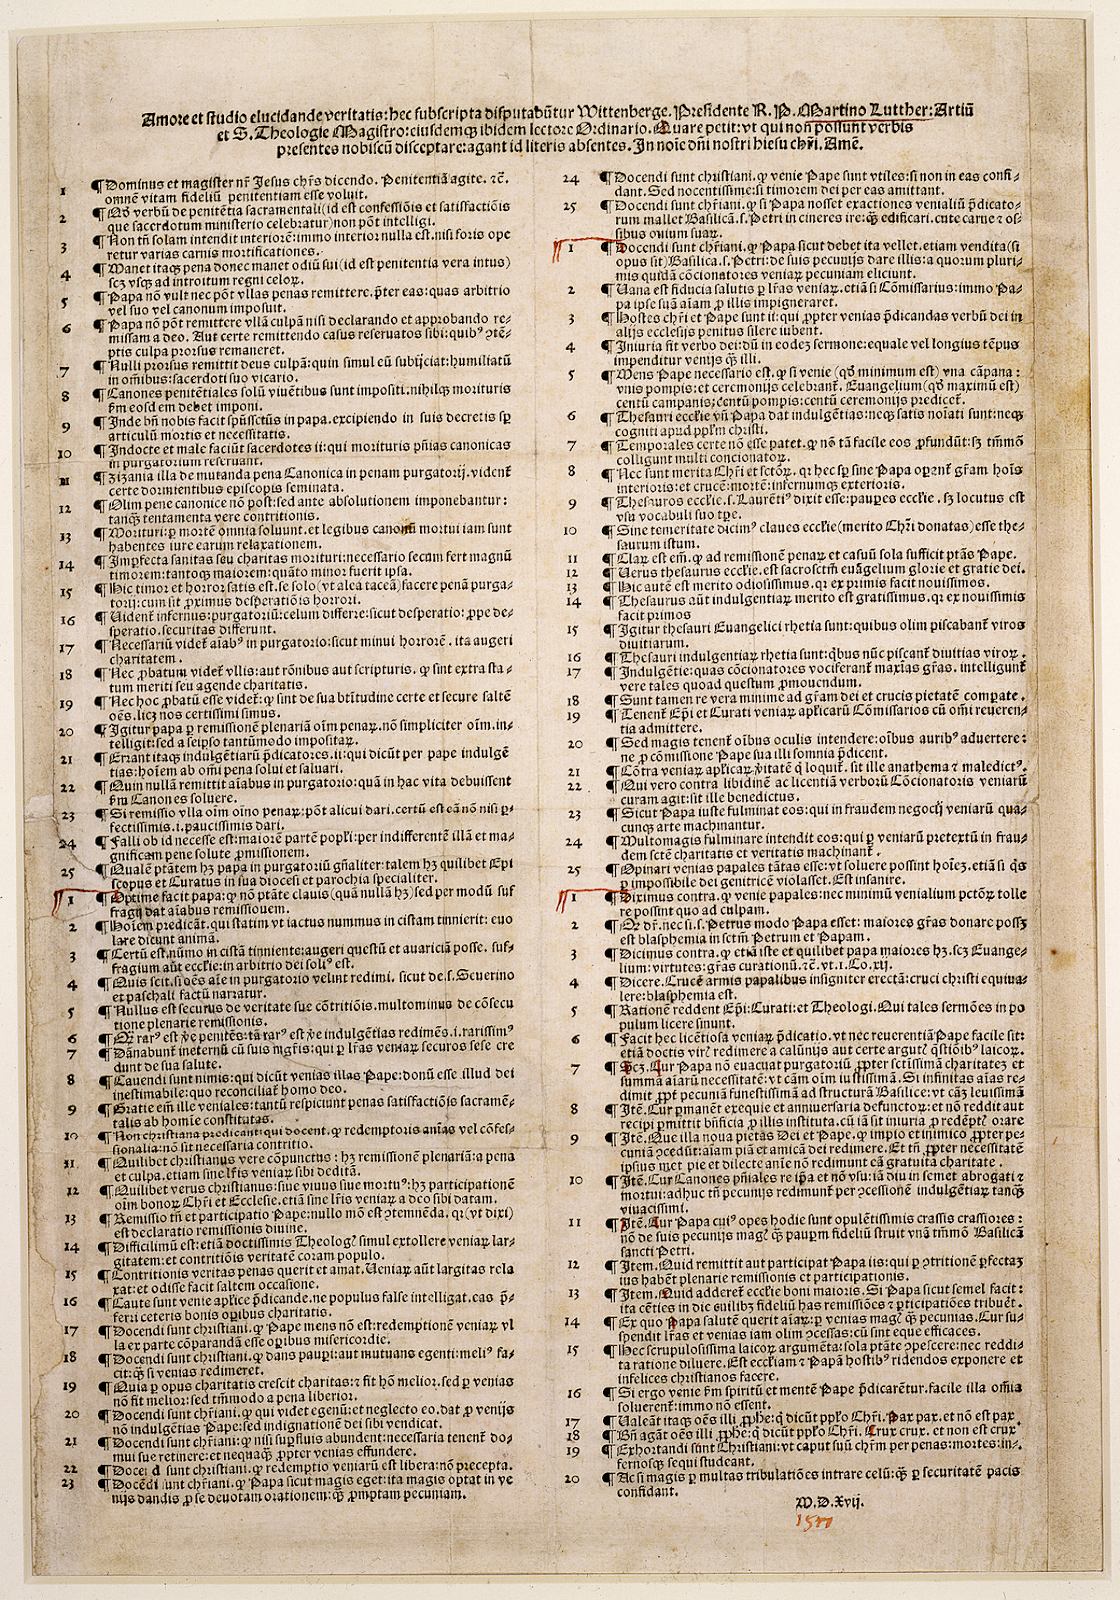 Amore et studio elucidande veritatis: hec subscripta disputabūtur Wittenberge. Presidente R. P. Martino Lutther: Artiū
et S. Theologie Magistro: eiusdemꝗ ibidem lectore Ordinario. Quare petit: vt qui non possunt verbis
presentes nobiscū disceptare: agant id literis absentes. In noīe dn̄i nostri hiesu chr̄i. Amē.
1 ¶ Dominus et magister nr̄ Jesus chr̄s dicendo. Penitentiā agite. ꝛc̄.
omnē vitam fideliū penitentiam esse voluit.
2 ¶ Qd̄ verbū de penitētia sacramentali (id est confessiōis et satisfactiōis
que sacerdotum ministerio celebratur) non pōt intelligi.
3 ¶ Non tn̄ solam intendit interiorē: immo interior nulla est. nisi foris ope
retur varias carnis mortificationes.
4 ¶ Manet itaꝗ pena donec manet odiū sui (id est penitentia vera intus)
scꝫ vsꝗ ad introitum regni celoꝝ.
5 ¶ Papa nō vult nec pōt vllas penas remittere. p̄ter eas: quas arbitrio
vel suo vel canonum imposuit.
6 ¶ Papa nō pōt remittere vllā culpā nisi declarando et approbando re-
missam a deo. Aut certe remittendo casus reseruatos sibi: quibꝰ ꝯtē-
ptis culpa prorsus remaneret.
7 ¶ Nulli prorsus remittit deus culpā: quin simul eū subijciat: humiliatū
in om̄ibus: sacerdoti suo vicario.
8 ¶ Canones penitētiales solū viuētibus sunt impositi. nihilꝗ morituris
ẜm eosdem debet imponi.
9 ¶ Inde bn̄ nobis facit sp̄ssctūs in papa. excipiendo in suis decretis sꝑ
articulū mortis et necessitatis.
10 ¶ Indocte et male faciūt sacerdotes ii: qui morituris pn̄ias canonicas
in purgatorium reseruant.
11 ¶ Zizania illa de mutanda pena Canonica in penam purgatorij. vident̄
certe dormientibus episcopis seminata.
12 ¶ Olim pene canonice nō post: sed ante absolutionem imponebantur:
tanꝗ̄ tentamenta vere contritionis.
13 ¶ Morituri: p mortē omnia soluunt. et legibus canonū mortui iam sunt
habentes iure earum relaxationem.
14 ¶ Imꝑfecta sanitas seu charitas morituri: necessario secum fert magnū
timorem: tantoꝗ maiorem: quāto minor fuerit ipsa.
15 ¶ Hic timor et horror satis est. se solo (vt alea taceā) facere penā purga-
torij: cum sit ꝓximus desperatiōis horrori.
16 ¶ Vident̄ infernus: purgatoriū: celum differre: sicut desperatio: ꝓpe de-
speratio. securitas differunt.
17 ¶ Necessariū videt̄ aīabꝰ in purgatorio: sicut minui horrorē. ita augeri
charitatem.
18 ¶ Nec ꝓbatum videt̄ vllis: aut rōnibus aut scripturis. ꝙ sint extra sta-
tum meriti seu agende charitatis.
19 ¶ Nec hoc ꝓbatū esse videt̄: ꝙ sint de sua btītudine certe et secure saltē
oēs. licꝫ nos certissimi simus.
20 ¶ Igitur papa ꝑ remissionē plenariā oīm penaꝝ. nō simpliciter oīm. in-
telligit: sed a seipso tantūmodo impositaꝝ.
21 ¶ Errant itaꝗ indulgētiarū p̄dicatores. ii: qui dicūt per pape indulgē
tias: hoīem ab om̄i pena solui et saluari.
22 ¶ Quin nullā remittit aīabus in purgatorio: quā in hac vita debuissent
ẜm Canones soluere.
23 ¶ Si remissio vlla oīm oīno penaꝝ: pōt alicui dari. certū est eā nō nisi ꝑ-
fectissimis. i. paucissimis dari.
24 ¶ Falli ob id necesse est: maiorē partē popl̓i: per indifferentē illā et ma-
gnificam pene solute ꝓmissionem.
25 ¶ Qualē ptātem hꝫ papa in purgatoriū gn̄aliter: talem hꝫ quilibet Epi
scopus et Curatus in sua diocesi et parochia specialiter.
1 ¶ Optime facit papa: ꝙ nō ptāte clauis (quā nullā hꝫ) sed per modū suf
fragij dat aīabus remissionem.
2 ¶ Hoīem predicāt. qui statim vt iactus nummus in cistam tinnierit: euo
lare dicunt animā.
3 ¶ Certū est. nūmo in cistā tinniente: augeri questū et auariciā posse. suf-
fragium aūt eccl̓ie: in arbitrio dei soliꝰ est.
4 ¶ Quis scit. si oēs aīe in purgatorio velint redimi. sicut de. s. Seuerino
et paschali factū narratur.
5 ¶ Nullus est securus de veritate sue cōtritiōis. multominus de cōsecu
tione plenarie remissionis.
6 ¶ Qꝫ rarꝰ est ꝟe penitēs: tā rarꝰ est ꝟe indulgētias redimēs. i. rarissimꝰ
7 ¶ Dānabunt̄ ineternū cū suis mgr̄is: qui ꝑ lr̄as veniaꝝ securos sese cre
dunt de sua salute.
8 ¶ Cauendi sunt nimis: qui dicūt venias illas Pape: donū esse illud dei
inestimabile: quo reconciliat̄ homo deo.
9 ¶ Gratie em̄ ille veniales: tantū respiciunt penas satisfactiōis sacramē-
talis ab homīe constitutas.
10 ¶ Non christiana predicant: qui docent. ꝙ redemptoris aīas vel cōfes-
sionalia: nō sit necessaria contritio.
11 ¶ Quilibet christianus vere cōpunctus: hꝫ remissionē plenariā: a pena
et culpa. etiam sine lr̄is veniaꝝ sibi debitā.
12 ¶ Quilibet verus christianus: siue viuus siue mortuꝰ: hꝫ participationē
oīm bonoꝝ Chr̄i et Ecclesie. etiā sine lr̄is veniaꝝ a deo sibi datam.
13 ¶ Remissio tn̄ et participatio Pape: nullo mō est ꝯtemnēda. qꝛ (vt dixi)
est declaratio remissionis diuine.
14 ¶ Difficilimū est: etiā doctissimis Theologꝭ simul extollere veniaꝝ lar-
gitatem: et contritiōis veritatē coram populo.
15 ¶ Contritionis veritas penas querit et amat. Veniaꝝ aūt largitas rela
xat: et odisse facit saltem occasione.
16 ¶ Caute sunt venie apl̓ice p̄dicande. ne populus false intelligat. eas p̄-
ferri ceteris bonis oꝑibus charitatis.
17 ¶ Docendi sunt christiani. ꝙ Pape mens nō est: redemptionē veniaꝝ vl
la ex parte cōparandā esse oꝑibus misericordie.
18 ¶ Docendi sunt christiani. ꝙ dans pauꝑi: aut mutuans egenti: meliꝰ fa-
cit: ꝗ̄ si venias redimeret.
19 ¶ Quia ꝑ opus charitatis crescit charitas: ⁊ fit hō melior. sed ꝑ venias
nō fit melior: sed tm̄modo a pena liberior.
20 ¶ Docendi sunt chr̄iani. ꝙ qui videt egenū: et neglecto eo. dat ꝓ venijs
nō indulgētias Pape: sed indignationē dei sibi vendicat.
21 ¶ Docendi sunt chr̄iani: ꝙ nisi suꝑfluis abundent: necessaria tenent̄ do-
mui sue retinere: et neꝗꝗ̄ ꝓpter venias effundere.
22 ¶ Docendi sunt christiani. ꝙ redemptio veniarū est libera: nō precepta.
23 ¶ Docēdi sunt chr̄iani. ꝙ Papa sicut magis eget: ita magis optat in ve
nijs dandis ꝓ se deuotam orationem: ꝗ̄ ꝓmptam pecuniam.
24 ¶ Docendi sunt christiani. ꝙ venie Pape sunt vtiles: si non in eas confi-
dant. Sed nocentissime: si timorem dei per eas amittant.
25 ¶ Docendi sunt chr̄iani. ꝙ si Papa nosset exactiones venialiū p̄dicato-
rum mallet Basilicā. s. Petri in cineres ire: ꝗ̄ edificari. cute carne ⁊ os-
sibus ouium suaꝝ.
1 ¶ Docendi sunt chr̄iani. ꝙ Papa sicut debet ita vellet. etiam vendita (si
opus sit) Basilica. s. Petri: de suis pecunijs dare illis: a quorum pluri-
mis quidā cōcionatores veniaꝝ pecuniam eliciunt.
2 ¶ Vana est fiducia salutis ꝑ lr̄as veniaꝝ. etiā si Cōmissarius: immo Pa-
pa ipse suā aīam ꝓ illis impigneraret.
3 ¶ Hostes chr̄i et Pape sunt ii: qui ꝓpter venias p̄dicandas verbū dei in
alijs ecclesijs penitus silere iubent.
4 ¶ Iniuria fit verbo dei: dū in eodeꝫ sermone: equale vel longius tēpus
impenditur venijs ꝗ̄ illi.
5 ¶ Mens Pape necessario est. ꝙ si venie (qd̄ minimum est) vna cāpana:
vnis pompis: et ceremonijs celebrant̄. Euangelium (qd̄ maximū est)
centū campanis: centū pompis: centū ceremonijs predicet̄.
6 ¶ Thesauri eccl̓ie vn̄ Papa dat indulgētias: neꝗ satis noīati sunt: neꝗ
cogniti apud ppl̓m christi.
7 ¶ Temporales certe nō esse patet. ꝙ nō tā facile eos ꝓfundūt: sꝫ tm̄mō
colligunt multi concionatoꝝ.
8 ¶ Nec sunt merita Chr̄i et sctōꝝ. qꝛ hec sꝑ sine Papa oꝑant̄ gr̄am hoīs
interioris: et crucē: mortē: infernumꝗ exterioris.
9 ¶ Thesauros eccl̓ie. s. Laurētiꝰ dixit esse: pauꝑes eccl̓ie. sꝫ locutus est
vsu vocabuli suo tꝑe.
10 ¶ Sine temeritate dicimꝰ claues eccl̓ie (merito Chr̄i donatas) esse the-
saurum istum.
11 ¶ Claꝝ est em̄. ꝙ ad remissionē penaꝝ et casuū sola sufficit ptās Pape.
12 ¶ Verus thesaurus eccl̓ie. est sacrosctm̄ euāgelium glorie et gratie dei.
13 ¶ Hic autē est merito odiosissimus. qꝛ ex primis facit nouissimos.
14 ¶ Thesaurus aūt indulgentiaꝝ merito est gratissimus. qꝛ ex nouissimis
facit primos
15 ¶ Igitur thesauri Euangelici rhetia sunt: quibus olim piscabant̄ viros
diuitiarum.
16 ¶ Thesauri indulgentiaꝝ rhetia sunt: qͥbus nūc piscant̄ diuitias viroꝝ.
17 ¶ Indulgētie: quas cōcionatores vociferant̄ maxīas gr̄as. intelligunt̄
vere tales quoad questum ꝓmouendum.
18 ¶ Sunt tamen re vera minime ad gr̄am dei et crucis pietatē compate.
19 ¶ Tenent̄ Ep̄i et Curati veniaꝝ apl̓icarū Cōmissarios cū om̄i reueren-
tia admittere.
20 ¶ Sed magis tenent̄ oībus oculis intendere: oībus auribꝰ aduertere:
ne ꝓ commissione Pape sua illi somnia p̄dicent.
21 ¶ Cōtra veniaꝝ apl̓icaꝝ ꝟitatē qͥ loquit̄. sit ille anathema ⁊ maledictꝰ.
22 ¶ Qui vero contra libidinē ac licentiā verborū Cōcionatoris veniarū
curam agit: sit ille benedictus.
23 ¶ Sicut Papa iuste fulminat eos: qui in fraudem negocij veniarū qua-
cunꝗ arte machinantur.
24 ¶ Multomagis fulminare intendit eos: qui ꝑ veniarū pretextū in frau-
dem sctē charitatis et veritatis machinant̄.
25 ¶ Opinari venias papales tātas esse: vt soluere possint hoīeꝫ. etiā si qͥs
ꝑ impossibile dei genitricē violasset. Est insanire.
1 ¶ Diximus contra. ꝙ venie papales: nec minimū venialium pctōꝝ tolle
re possint quo ad culpam.
2 ¶ Qꝫ dr̄. nec si. s. Petrus modo Papa esset: maiores gr̄as donare possꝫ
est blasphemia in sctm̄ Petrum et Papam.
3 ¶ Dicimus contra. ꝙ etiā iste et quilibet papa maiores hꝫ. scꝫ Euange-
lium: virtutes: gr̄as curationū. ꝛc̄. vt. i. Co. xij.
4 ¶ Dicere. Crucē armis papalibus insigniter erectā: cruci christi equiua-
lere: blasphemia est.
5 ¶ Rationē reddent Ep̄i: Curati: et Theologi. Qui tales sermōes in po
pulum licere sinunt.
6 ¶ Facit hec licentiosa veniaꝝ p̄dicatio. vt nec reuerentiā Pape facile sit:
etiā doctis virꝭ redimere a calūnijs aut certe argutꝭ q̄stiōibꝰ laicoꝝ.
7 ¶ Scꝫ. Cur Papa nō euacuat purgatoriū ꝓpter sctissimā charitateꝫ et
summā aīarū necessitatē: vt cām oīm iustissimā. Si infinitas aīas re-
dimit ꝓpt̄ pecuniā funestissimā ad structurā Basilice: vt cāꝫ leuissimā
8 ¶ Itē. Cur ꝑmanēt exequie et anniuersaria defunctoꝝ: et nō reddit aut
recipi ꝑmittit bn̄ficia ꝓ illis instituta. cū iā sit iniuria ꝓ redēptꝭ orare
9 ¶ Itē. Que illa noua pietas Dei et Pape. ꝙ impio et inimico ꝓpter pe-
cuniā ꝯcedūt: aīam piā et amicā dei redimere. Et tn̄ ꝓpter necessitatē
ipsius met pie et dilecte aīe nō redimunt eā gratuita charitate.
10 ¶ Itē. Cur Canones pn̄iales re ip̄a et nō vsu: iā diu in semet abrogati ⁊
mortui: adhuc tn̄ pecunijs redimunt̄ per ꝯcessionē indulgētiaꝝ tanꝗ̄
viuacissimi.
11 ¶ Itē. Cur Papa cuiꝰ opes hodie sunt opulētissimis crassis crassiores:
nō de suis pecunijs magꝭ ꝗ̄ pauꝑm fideliū struit vnā tm̄mō Basilicā
sancti Petri.
12 ¶ Item. Quid remittit aut participat Papa iis: qui ꝑ ꝯtritionē ꝑfectaꝫ
ius habēt plenarie remissionis et participationis.
13 ¶ Item. Quid adderet̄ eccl̓ie boni maioris. Si Papa sicut semel facit:
ita cēties in die cuilibꝫ fideliū has remissiōes ⁊ ꝑticipatiōes tribuēt.
14 ¶ Ex quo Papa salutē querit aīaꝝ: ꝑ venias magꝭ ꝗ̄ pecunias. Cur su-
spendit lr̄as et venias iam olim ꝯcessas: cū sint eque efficaces.
15 ¶ Hec scrupulosissima laicoꝝ argumēta: sola ptāte ꝯpescere: nec reddi-
ta ratione diluere. Est eccl̓iam ⁊ Papā hostibꝰ ridendos exponere et
infelices christianos facere.
16 ¶ Si ergo venie ẜm spiritū et mentē Pape p̄dicarētur. facile illa om̄ia
soluerent̄: immo nō essent.
17 ¶ Valeāt itaꝗ oēs illi ꝓphe: qͥ dicūt ppl̓o Chr̄i. Pax pax. et nō est pax
18 ¶ Bn̄ agāt oēs illi ꝓphe: qͥ dicūt ppl̓o Chr̄i. Crux crux. et non est crux
19 ¶ Exhortandi sūnt Christiani: vt caput suū chr̄m per penas: mortes: in-
fernosꝗ sequi studeant.
20 ¶ Ac si magis ꝑ multas tribulatiōes intrare celū: ꝗ̄ ꝑ securitatē pacis
confidant.
M.D.Xvij.
1517